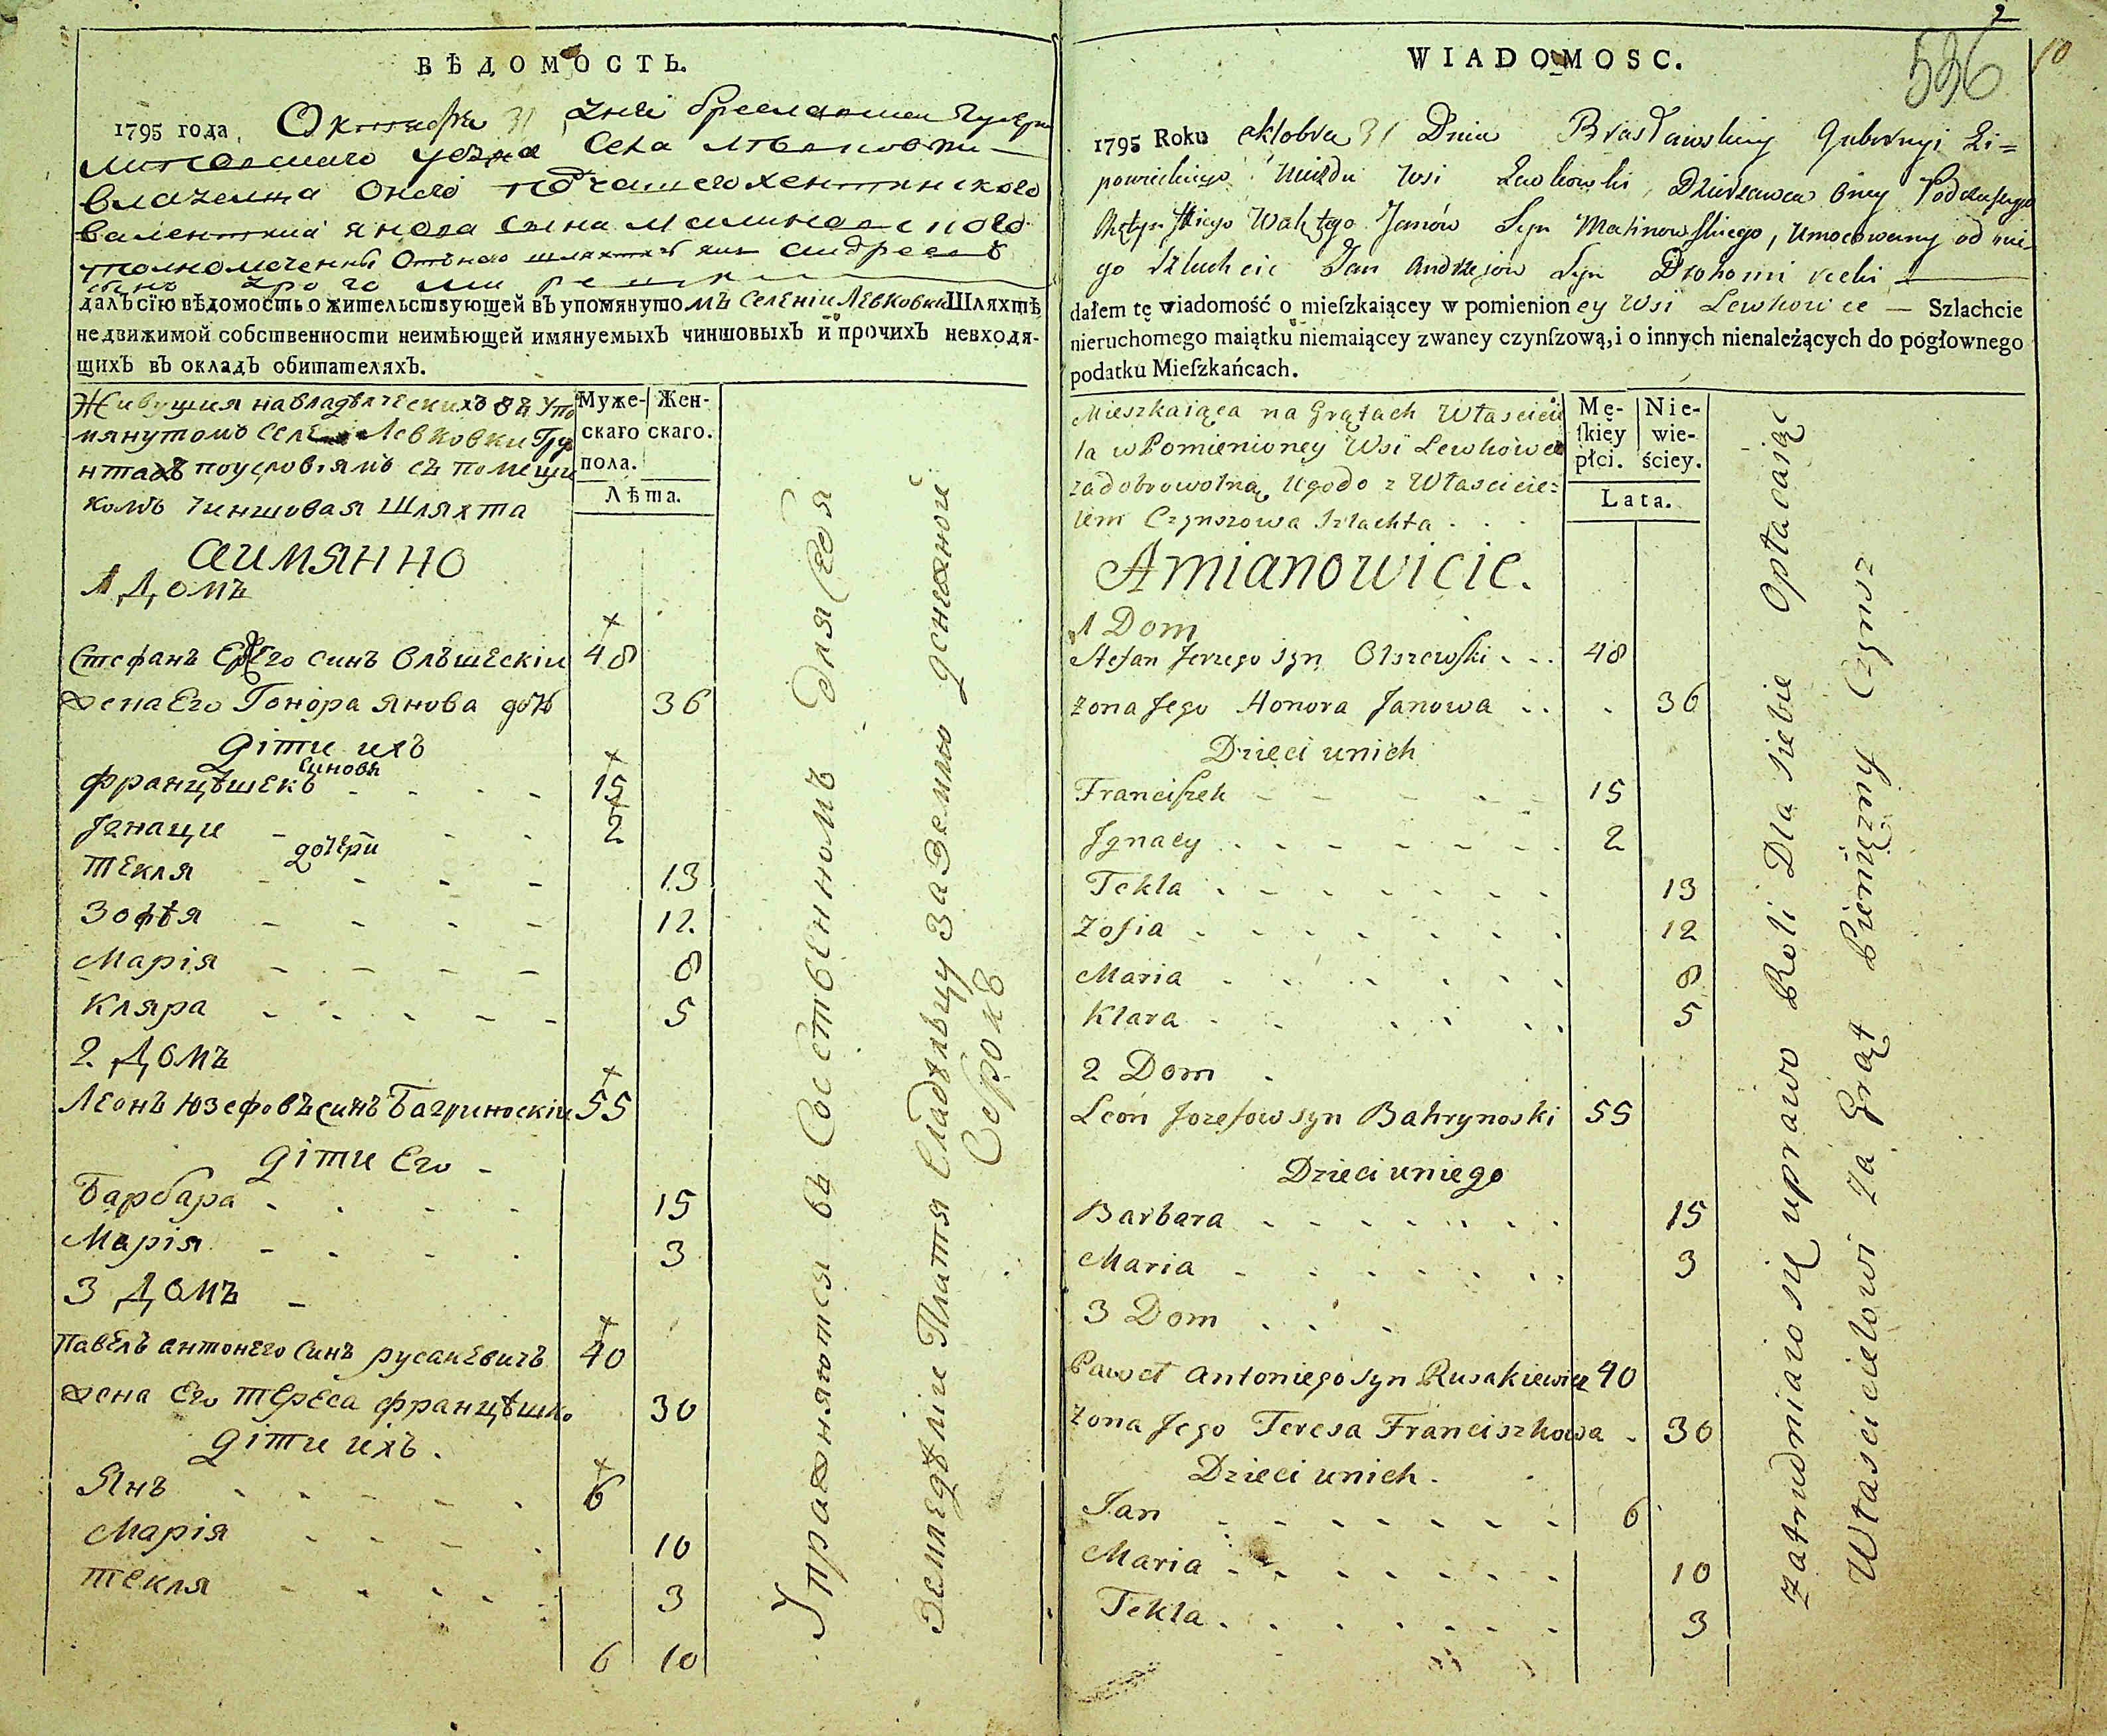 ВѢДОМОСТЬ.
1795 года, Октября 31 дня Брацлавской Губерн
Липовецкаго уезда Села Левковки
валентия янова сына малиновского
далъ сїю вѣдомость о жительствующей въ упомянутомъ Селеніи Левковки Шляхтѣ
недвижимой собственности неимѣющей имянуемыхъ чиншовыхъ и прочихъ невходя-
щихъ въ окладъ обитателяхъ.
Живущия на владѣлческихъ въ упо
мянутомъ селе Левковки Гру
нтахъ поусловіямъ съ помещи
комъ чиншовая Шляхта
Муже-
скаго
пола.
Жен-
скаго.
Лѣта.
аимянно
1 Домъ
Стефанъ Ержего синъ Олѣшескіи 48
жена Его Гонора янова дочь 36
діти ихъ
синовя
Францѣшекъ 15
Jгнаци 2
дочери
Текля 13
Зофѣя 12.
Марія 8
Кляра 5
2. Домъ
Леонъ Юзефовъ синъ Багриноскіи 55
діти Его
Барбара 15
Марія 3
3 Домъ
Павелъ антонего Синъ русакевичъ 40
жена Его Тереса францѣшко 30
діти ихъ.
Янъ 6
Марія 10
Текля 3
6 10
Упражняются въ Собственномъ для себя
Земледѣлие Платя Владѣлцу за Землю денежной
Оброкъ
2
536
10
WIADOMOSC.
1795 Roku oktobra 31 Dnia Brasławskiey Gubernyi Li=
powieckiego Uiezdu Wsi Lewkowki, Dzierzawca oney Podczaszego
Walętego Janów Syn Malinowskiego, Umocowany od nie
go Szlachcic Jan Andrzejow Syn
dałem tę wiadomość o mieſzkaiącey w pomienioney Wsi Lewkowce — Szlachcie
nieruchomego maiątku niemaiącey zwaney czynſzową, i o innych nienależących do pogłownego
podatku Mieſzkańcach.
Mieszkaiąca na Grątach Własciciе
la w Pomienioney Wsi Lewkowce
za dobrowolną Ugodo z Własciciе=
lem Czynszowa Szlachta
Mę-
ſkiey
płci.
Nie-
wie-
ściey.
Lata.
Amianowicie.
1 Dom
Stefan Jerzego syn Olszewski 48
żona Jego Honora Janowa 36
Dzieci unich
Franciſzek 15
Jgnacy 2
Tekla 13
Zofia 12
Maria 8
Klara 5
2 Dom
Leon Jozefow syn Bahrynoski 55
Dzieci uniego
Barbara 15
Maria 3
3 Dom
Paweł Antoniego syn Rusakiewicz 40
żona Jego Teresa Franciszkowa 30
Dzieci unich.
Jan 6
Maria 10
Tekla 3
Zatrudniaio się uprawo Roli Dla siebie Opłacaiąc
Włascicielowi Za Grąt Pieniężny Czynsz